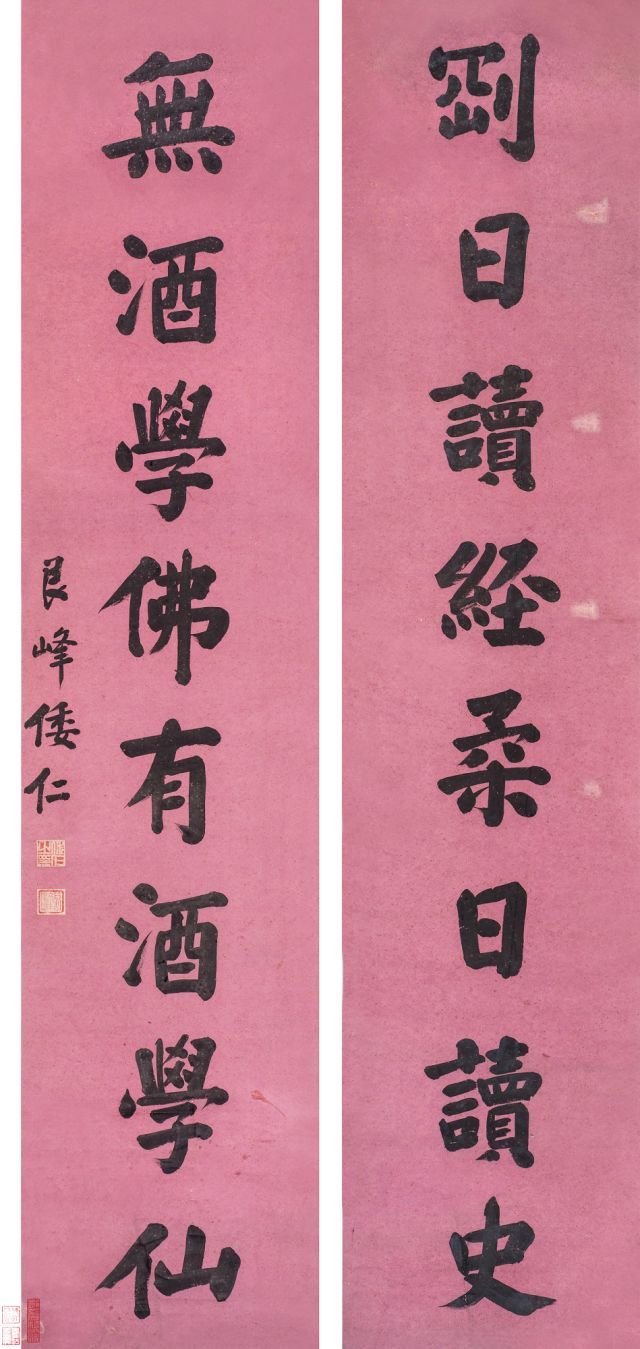 剛日讀經柔日讀史
無酒學佛有酒學仙
艮峰倭仁